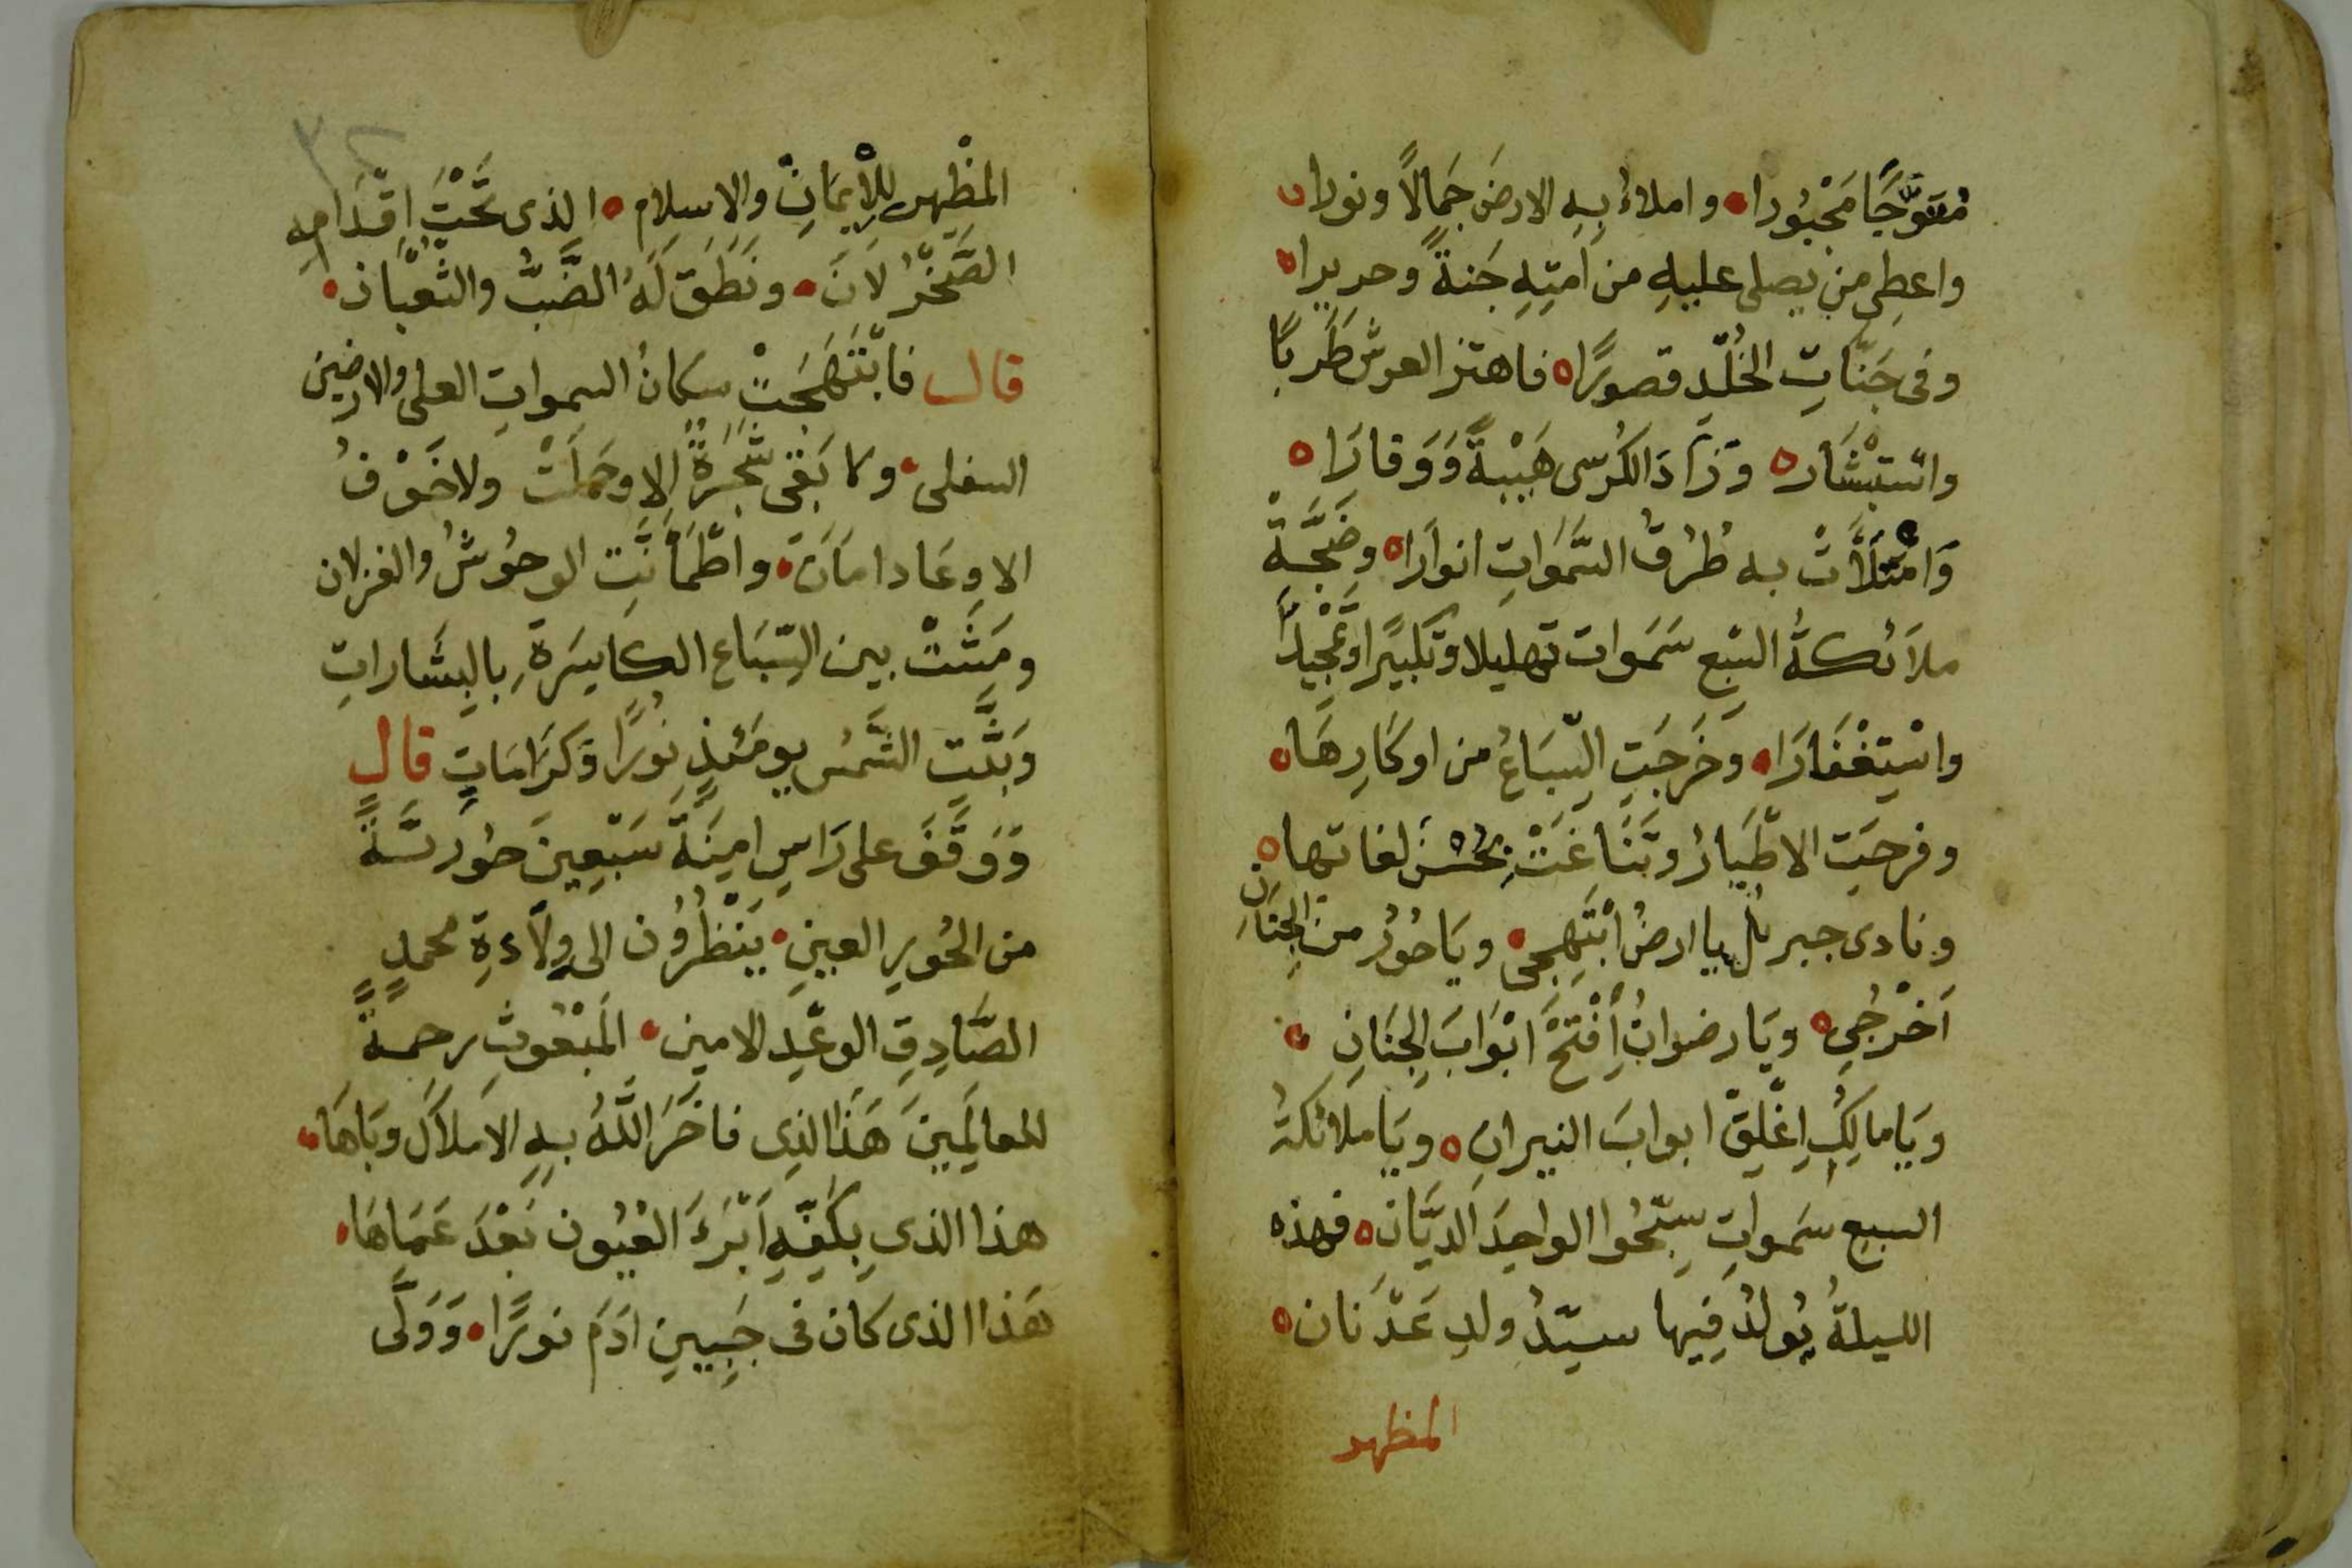 مُتَوَّجًا مَحْبُورا ه واملاءُ بِهِ الارضَ جَمالاً ونورا ه
واعطى من يصلى عليهِ من امتِهِ جَنةً وحريرا ه
وفى جَنّاتِ الخُلْدِ قصورًا ه فاهتز العرش طَرَبًا
واسْتبْشَار ه وَزَادَ الكُرسى هَيْبةً وَوَقارَا ه
وَامْتلَأَتْ به طُرُقُ السَّمٰواتِ انوارَا ه وضَجَّةْ
ملَائكةُ السْبعِ سَمَوات تهليلا وتكبيًرا وتمْجِيدًا
واسْتِغْفَارَا ه وَخَرَجَتِ السِّبَاعُ من اوكَارِهَا ه
وفرحَتِ الاطْيَارُ وتَنَاغَتْ بحُسْنِ لغاتها ه
ونادى جبرئلُ يا ارضُ ابْتَهِجى ه ويَا حُورُ من الجِنَان
اَخْرُجِى ه ويَا رضوانُ اِفْتَحْ ابْوَابَ الجِنَانِ ه
ويَا مالِكُ اِغْلِقْ ابوابَ النيرانِ ه ويَا ملائكةُ
السبعِ سَمواتِ سِبِّحُوا الواحِدَ الديَّان ه فهذه
الليلةُ يُولدُ فِيها سيّدُ ولدِ عَدْنَان ه
المظهر
المظْهِر للاِيمَانِ والاسِلامِ ه الذى تَحْتَ اقْدَامِهِ
الصَّخْرُ لَانَ ه ونَطَقَ لَهُ الضَّبُّ والثعْبَان ه
قال فابْتَهَجَتْ سكانُ السمواتِ العلى والارضين
السفلى ه ولا بَقى شَجَرَةٌ الا وحَملَتْ ولا خَوْفُ
الا وعَاد امَانَ ه واطْمَأنَّتِ الوحُوشُ والغزلان
ومَشَتْ بين السِّبَاع الكاسِرَةِ بالبِشَاراتِ
وَبَثَّتِ الشَّمْسُ يومَئذٍ نُورًا وَكرَامَاتٍ قال
وَوَقَفَ على رَاسِ امِنَةَ سَبْعِينَ حُورسَّةً
من الحُورِ العينِ ه يَنْظُرُون الى وِلَاءدَةِ محمدٍ
الصَّادِقِ الوعْدِ الامين ه المَبْعُوثِ رحمةً
للعالَمِينَ هَذا الذِى فاخَرَ اللَّهُ بهِ الامْلاكَ وبَاهَا ه
هذا الذى بِكَفِّهِ اَبْرَءَ العُيُون بَعْدَ عَمَاهَا ه
هَذا الذى كان فى جَبِيينِ ادَمَ نورًا ه وَوَلَّى